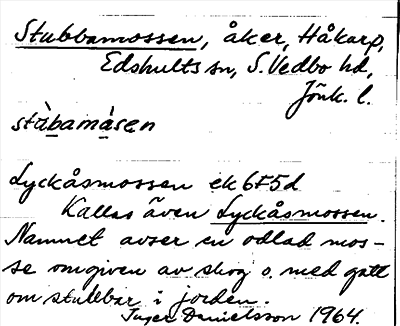 Stubbamossen, åker, Håkarp,
Edshults sn, S. Vedbo hd,
Jönk. l.
stàbamåsen
Lyckåsmossen ek 6F5d
Kallas även Lyckåsmossen.
Namnet avser en odlad mos-
se omgiven av skog o. med gott
om stubbar i jorden.
Inger Danielsson 1964.